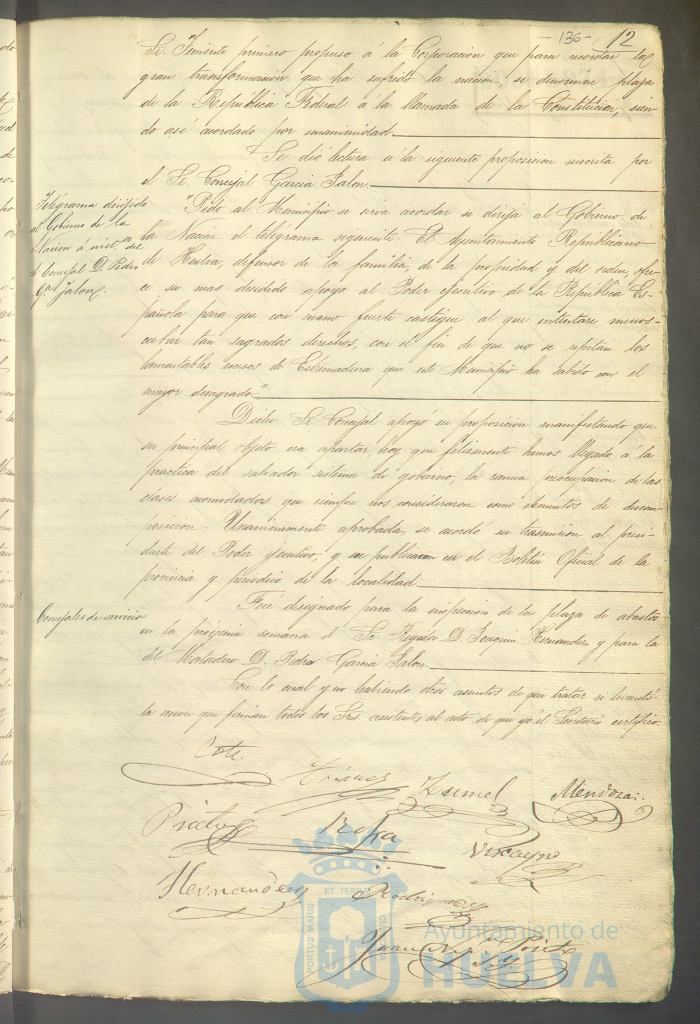 -136- 12
Sr. Teniente primero propuso á la Corporacion que para recordar la
gran transformacion que ha sufrido la nacion, se denomine plaza
de la República Federal á la llamada de la Constitucion, sien-
do asi acordado por unanimidad.
Se dió lectura á la siguiente proposicion suscrita por
el Sr. Concejal Garcia Jalon.
Telégrama dirijido
al Gobierno de la
Nacion á
el Concejal D. Pedro
Ga. Jalon.
"Pido al Municipio se sirva acordar se dirija al Gobierno de
la Nacion el telégrama siguiente. El Ayuntamiento Republicano
de Huelva, defensor de la familia, de la propiedad y del orden, ofre-
ce su mas decidido apoyo al Poder ejecutivo de la República Es-
pañola para que con mano fuerte castigue al que intentare menos-
cabar tan sagrados derechos, con el fin de que no se repitan los
lamentables sucesos de Estremadura que este Municipio ha sabido con el
mayor desagrado".
Dicho Sr. Concejal apoyó su proposicion manifestando que
su principal objeto era apartar hoy que felizmente hemos llegado á la
practica del salvador sistema de gobierno, la rancia preocupacion de las
clases acomodadas que siempre nos consideraron como elementos de descom-
posicion. Unanimemente aprobada, se acordó su trasmision al presi-
dente del Poder ejecutivo, y su publicacion en el Boletin Oficial de la
provincia y periódico de la localidad.
Concejales de servicio
Fué designado para la inspeccion de la plaza de abastos
en la proxima semana el Sr. Regidor D. Joaquin Hernandez y para la
del Matadero D. Pedro Garcia Jalon.
Con lo cual y no habiendo otros asuntos de que tratar se levantó
la sesion que firman todos los Sres. asistentes al acto de que yo el Secretario certifico.
Cote
Zumel Mendoza
Prieto Vizcayno
Hernandez Rodriguez
Juan
PORTUS MARIS ET TERRAE CUSTODIA
Ayuntamiento de
HUELVA